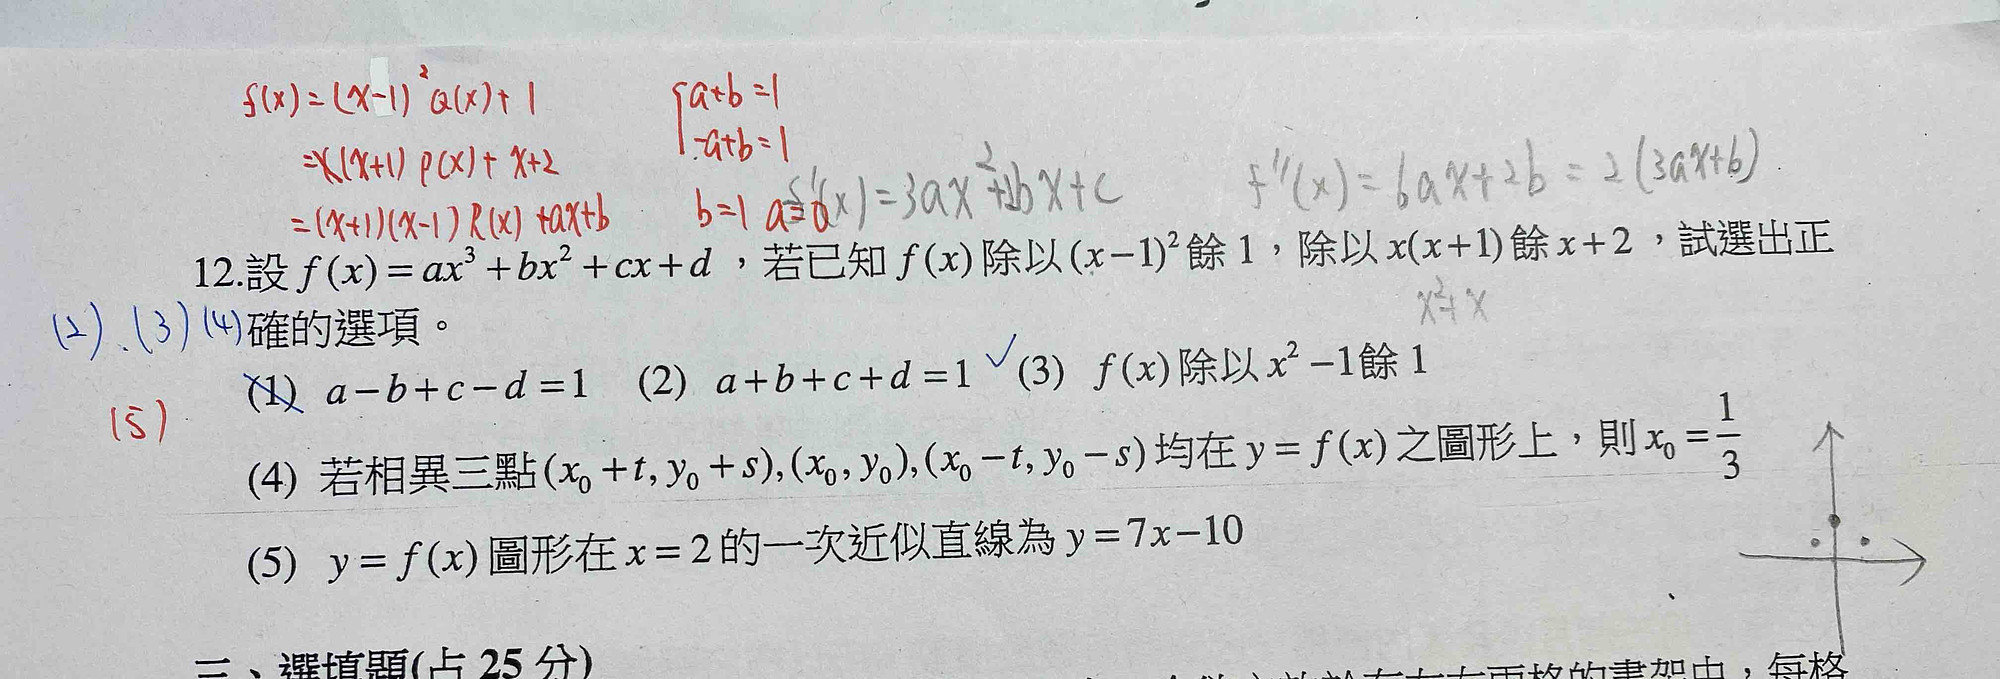 f(x)=(x-1)²Q(x)+1
a+b=1
=x(x+1)P(x)+x+2
-a+b=1
=(x+1)(x-1)R(x)+ax+b
b=1 a=0
f'(x)=3ax²+2bx+c
f''(x)=6ax+2b=2(3ax+b)
12.設 f(x)=ax³+bx²+cx+d ，若已知 f(x) 除以 (x−1)² 餘 1，除以 x(x+1) 餘 x+2 ，試選出正
x²+x
(2).(3)(4)確的選項。
(1) a−b+c−d=1 (2) a+b+c+d=1 ✓(3) f(x) 除以 x²−1 餘 1
(5)
(4) 若相異三點 (x₀+t, y₀+s), (x₀, y₀), (x₀−t, y₀−s) 均在 y=f(x) 之圖形上，則 x₀=1/3
(5) y=f(x) 圖形在 x=2 的一次近似直線為 y=7x−10
三、選填題(占 25 分)